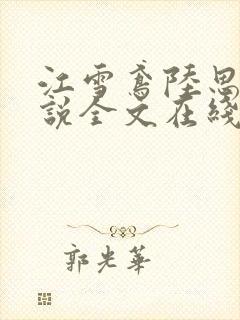 江雪鸢陸思
說全文在綫
郭光華